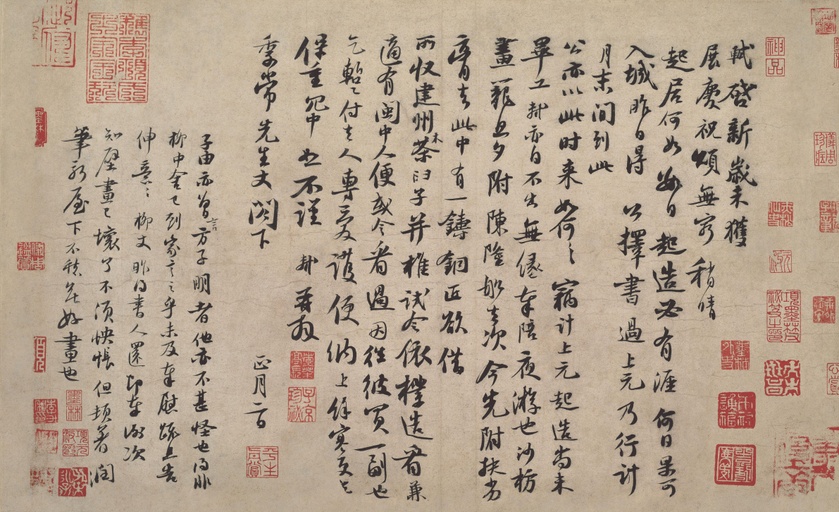 軾啓新歲未獲
展慶祝頌無窮稍晴
起居何如數日起造必有涯何日果可
入城昨日得公擇書過上元乃行計
月末間到此
公亦以此時來如何々竊計上元起造尚未
畢工軾亦自不出無緣奉陪夜游也沙枋
畫籠旦夕附陳隆船去次今先附扶劣
膏去此中有一鑄銅匠欲借
所收建州木茶臼子并椎試令依樣造看兼
適有閩中人便或令看過因往彼買一副也
乞暫付去人專愛護便納上餘寒更乞
保重冗中恕不謹軾再拜
季常先生丈閤下
正月二日
子由亦曾言方子明者他亦不甚怪也得非
柳中舍已到家言之乎未及奉慰疏且告
伸意々柳丈昨得書人還即奉謝次
知壁畫已壞了不須怏悵但頓著潤
筆新屋下不愁無好畫也
神品